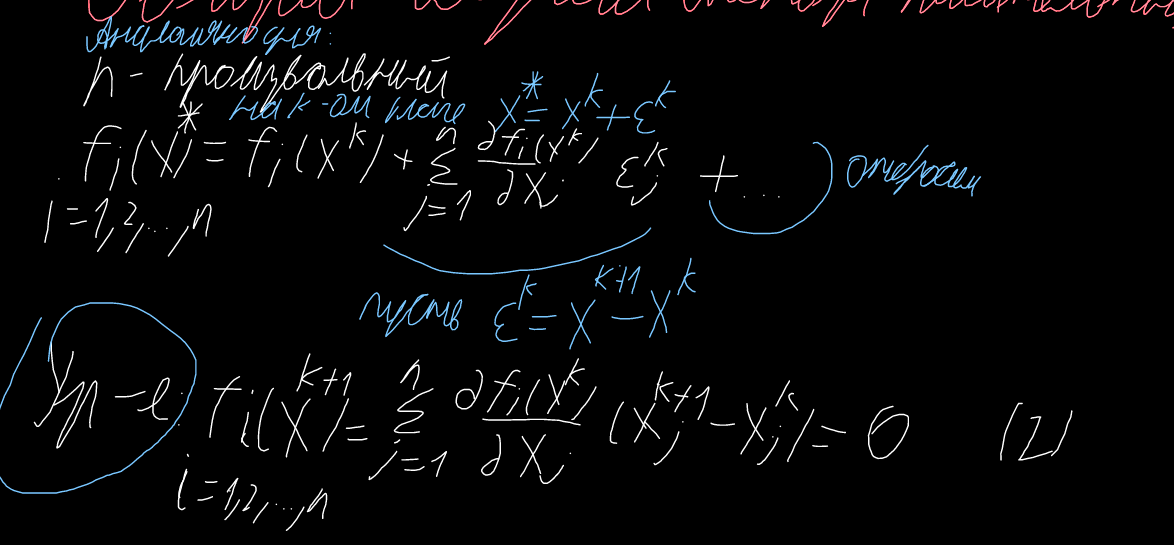 Аналогично для:
n - произвольный
на k-ом шаге x* = x^k + ε^k
f_i(x*) = f_i(x^k) + Σ_{j=1}^{n} ∂f_i(x^k)/∂x_j ε_j^k + ... отбросим
i = 1,2,...,n
пусть ε^k = x^{k+1} - x^k
Ур-е: f_i(x^{k+1}) = Σ_{j=1}^{n} ∂f_i(x^k)/∂x_j (x_j^{k+1} - x_j^k) = 0 (2)
i = 1,2,...,n